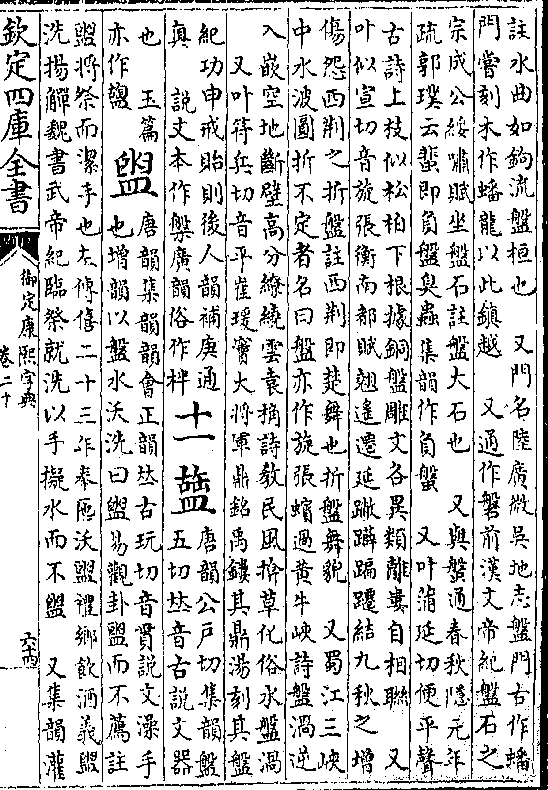 註水曲如鉤流盤桓也　又門名陸廣微吳地志盤門古作蟠
門嘗刻木作蟠龍以此鎮越　又通作磐前漢文帝紀盤石之
宗成公綏嘯賦坐盤石註盤大石也　又與盤通春秋隱元年
疏郭璞云蜚即負盤臭蟲集韻作負蠜　又叶蒲延切便平聲
古詩上枝似松柏下根據銅盤雕文各異類離婁自相聯　又
叶似宣切音旋張衡南都賦翹遙遷延蹴躃蹁躚結九秋之增
傷怨西荆之折盤註西荆即楚舞也折盤舞貌　又蜀江三峽
中水波圓折不定者名曰盤亦作旋張蠙過黄牛峽詩盤渦逆
入嵌空地斷壁高分繚繞雲袁桷詩敎民風揜草化俗水盤渦
　又叶蒲兵切音平崔瑗竇大將軍鼎銘禹鏤其鼎湯刻其盤
紀功申戒貽則後人韻補庚通
眞　說文本作槃廣韻俗作柈　十一　盬　唐韻公戶切集韻盤五切𠀤音古說文器
也　玉篇亦作䀇　盥　唐韻集韻韻會正韻𠀤古玩切音貫說文澡手也增韻以盤水沃洗曰盥易觀卦盥而不薦註
盥將祭而潔手也左傳僖二十三年奉匜沃盥禮鄉飲酒義盥
洗揚觶魏書武帝紀臨祭就洗以手擬水而不盥　又集韻灌
欽定四庫全書
御定康熙字典
卷二十
六十四